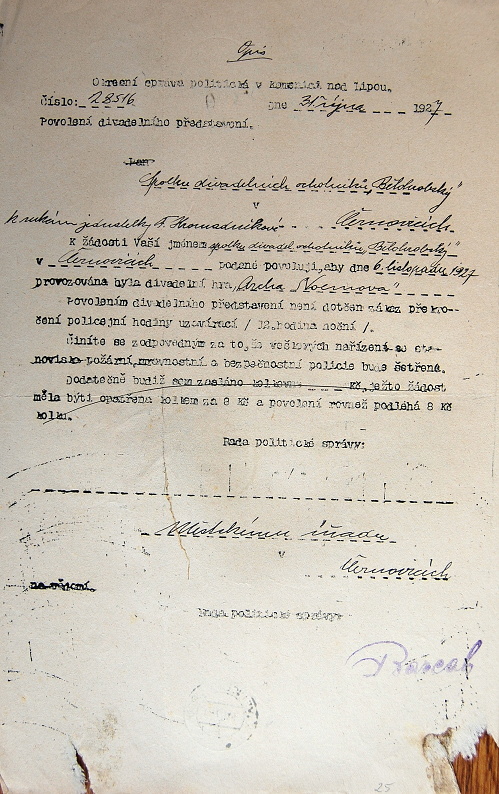 Opis
Okresní správa politická v Kamenici nad Lipou.
Číslo: 28516 Dne 31. října 1927
Povolení divadelního představení.
Pan
Spolku divadelních ochotníků „Bělohrobský"
v
Černovicích
k rukám jednatelky F. Hromadníkové
K žádosti Vaší jménem spolku divadel. ochotníků „Bělohrobský"
v Černovicích podané povoluji, aby dne 6. listopadu 1927
provozována byla divadelní hra „Archa Noemova"
Povolením divadelního představení není dotčen zákaz překro-
čení policejní hodiny uzavírací / 12. hodina noční /.
Činíte se zodpovědným za to, že veškerých nařízení se sta-
noviska požární, mravnostní a bezpečnostní policie bude šetřeno.
Dodatečně budiž sem zasláno kolkovné Kč, ježto žádost
měla býti opatřena kolkem za 8 Kč a povolení rovněž podléhá 8 Kč
kolku.
Rada politické správy:
Městskému úřadu
v
Černovicích
na vědomí.
Rada politické správy:
25